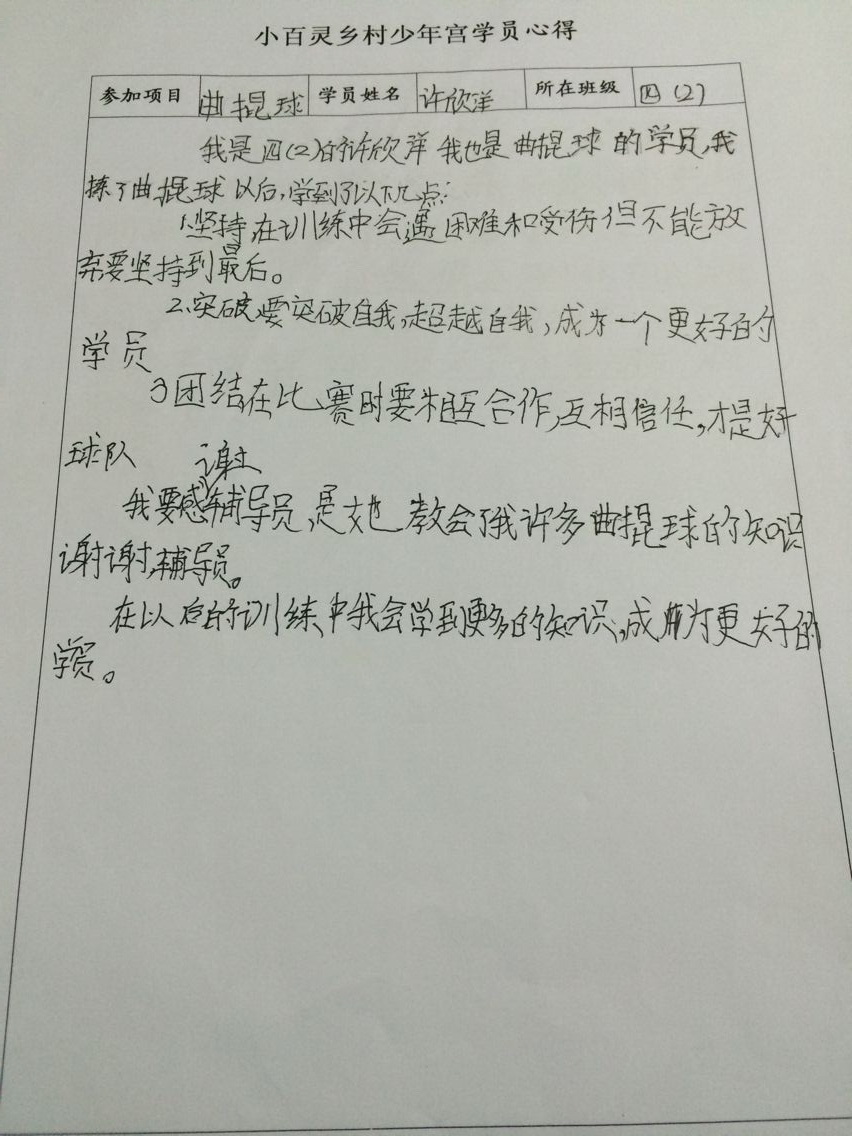 小百灵乡村少年宫学员心得
参加项目 曲掍球 学员姓名 许欣洋 所在班级 四(2)
我是四(2)的许欣洋 我也是曲掍球的学员,我
练了曲掍球以后,学到了以下几点:
1.坚持在训练中会遇困难和受伤但不能放
弃要坚持到最后。
2.突破要突破自我,超越自我,成为一个更好的
学员
3团结在比赛时要相互合作,互相信任,才是好
球队
我要感谢辅导员,是她教会了我许多曲掍球的知识
谢谢,辅导员。
在以后的训练中我会学到更多的知识,成为更好的
学员。